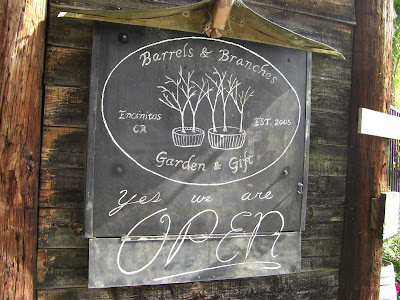 Barrels & Branches
Encinitas
CA
EST. 2005
Garden & Gift
Yes we are
OPEN